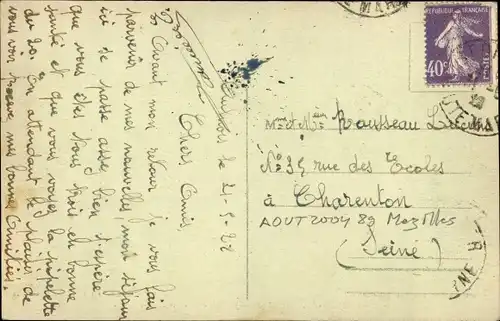 le 21-5-28
Chers Amis,
Avant mon retour je vous fais
parvenir de mes nouvelles, mon séjour
ici se passe assez bien j'espère
que vous êtes tous trois en bonne
santé et que vous voyez la
du 20. En attendant le plaisir de
vous voir recevez mes bonnes Amitiés
RÉPUBLIQUE FRANÇAISE
40c
POSTES
Mr et Mme Rousseau Lucien
No 35 rue des Ecoles
à Charenton
AOUT 2004 89
(Seine)